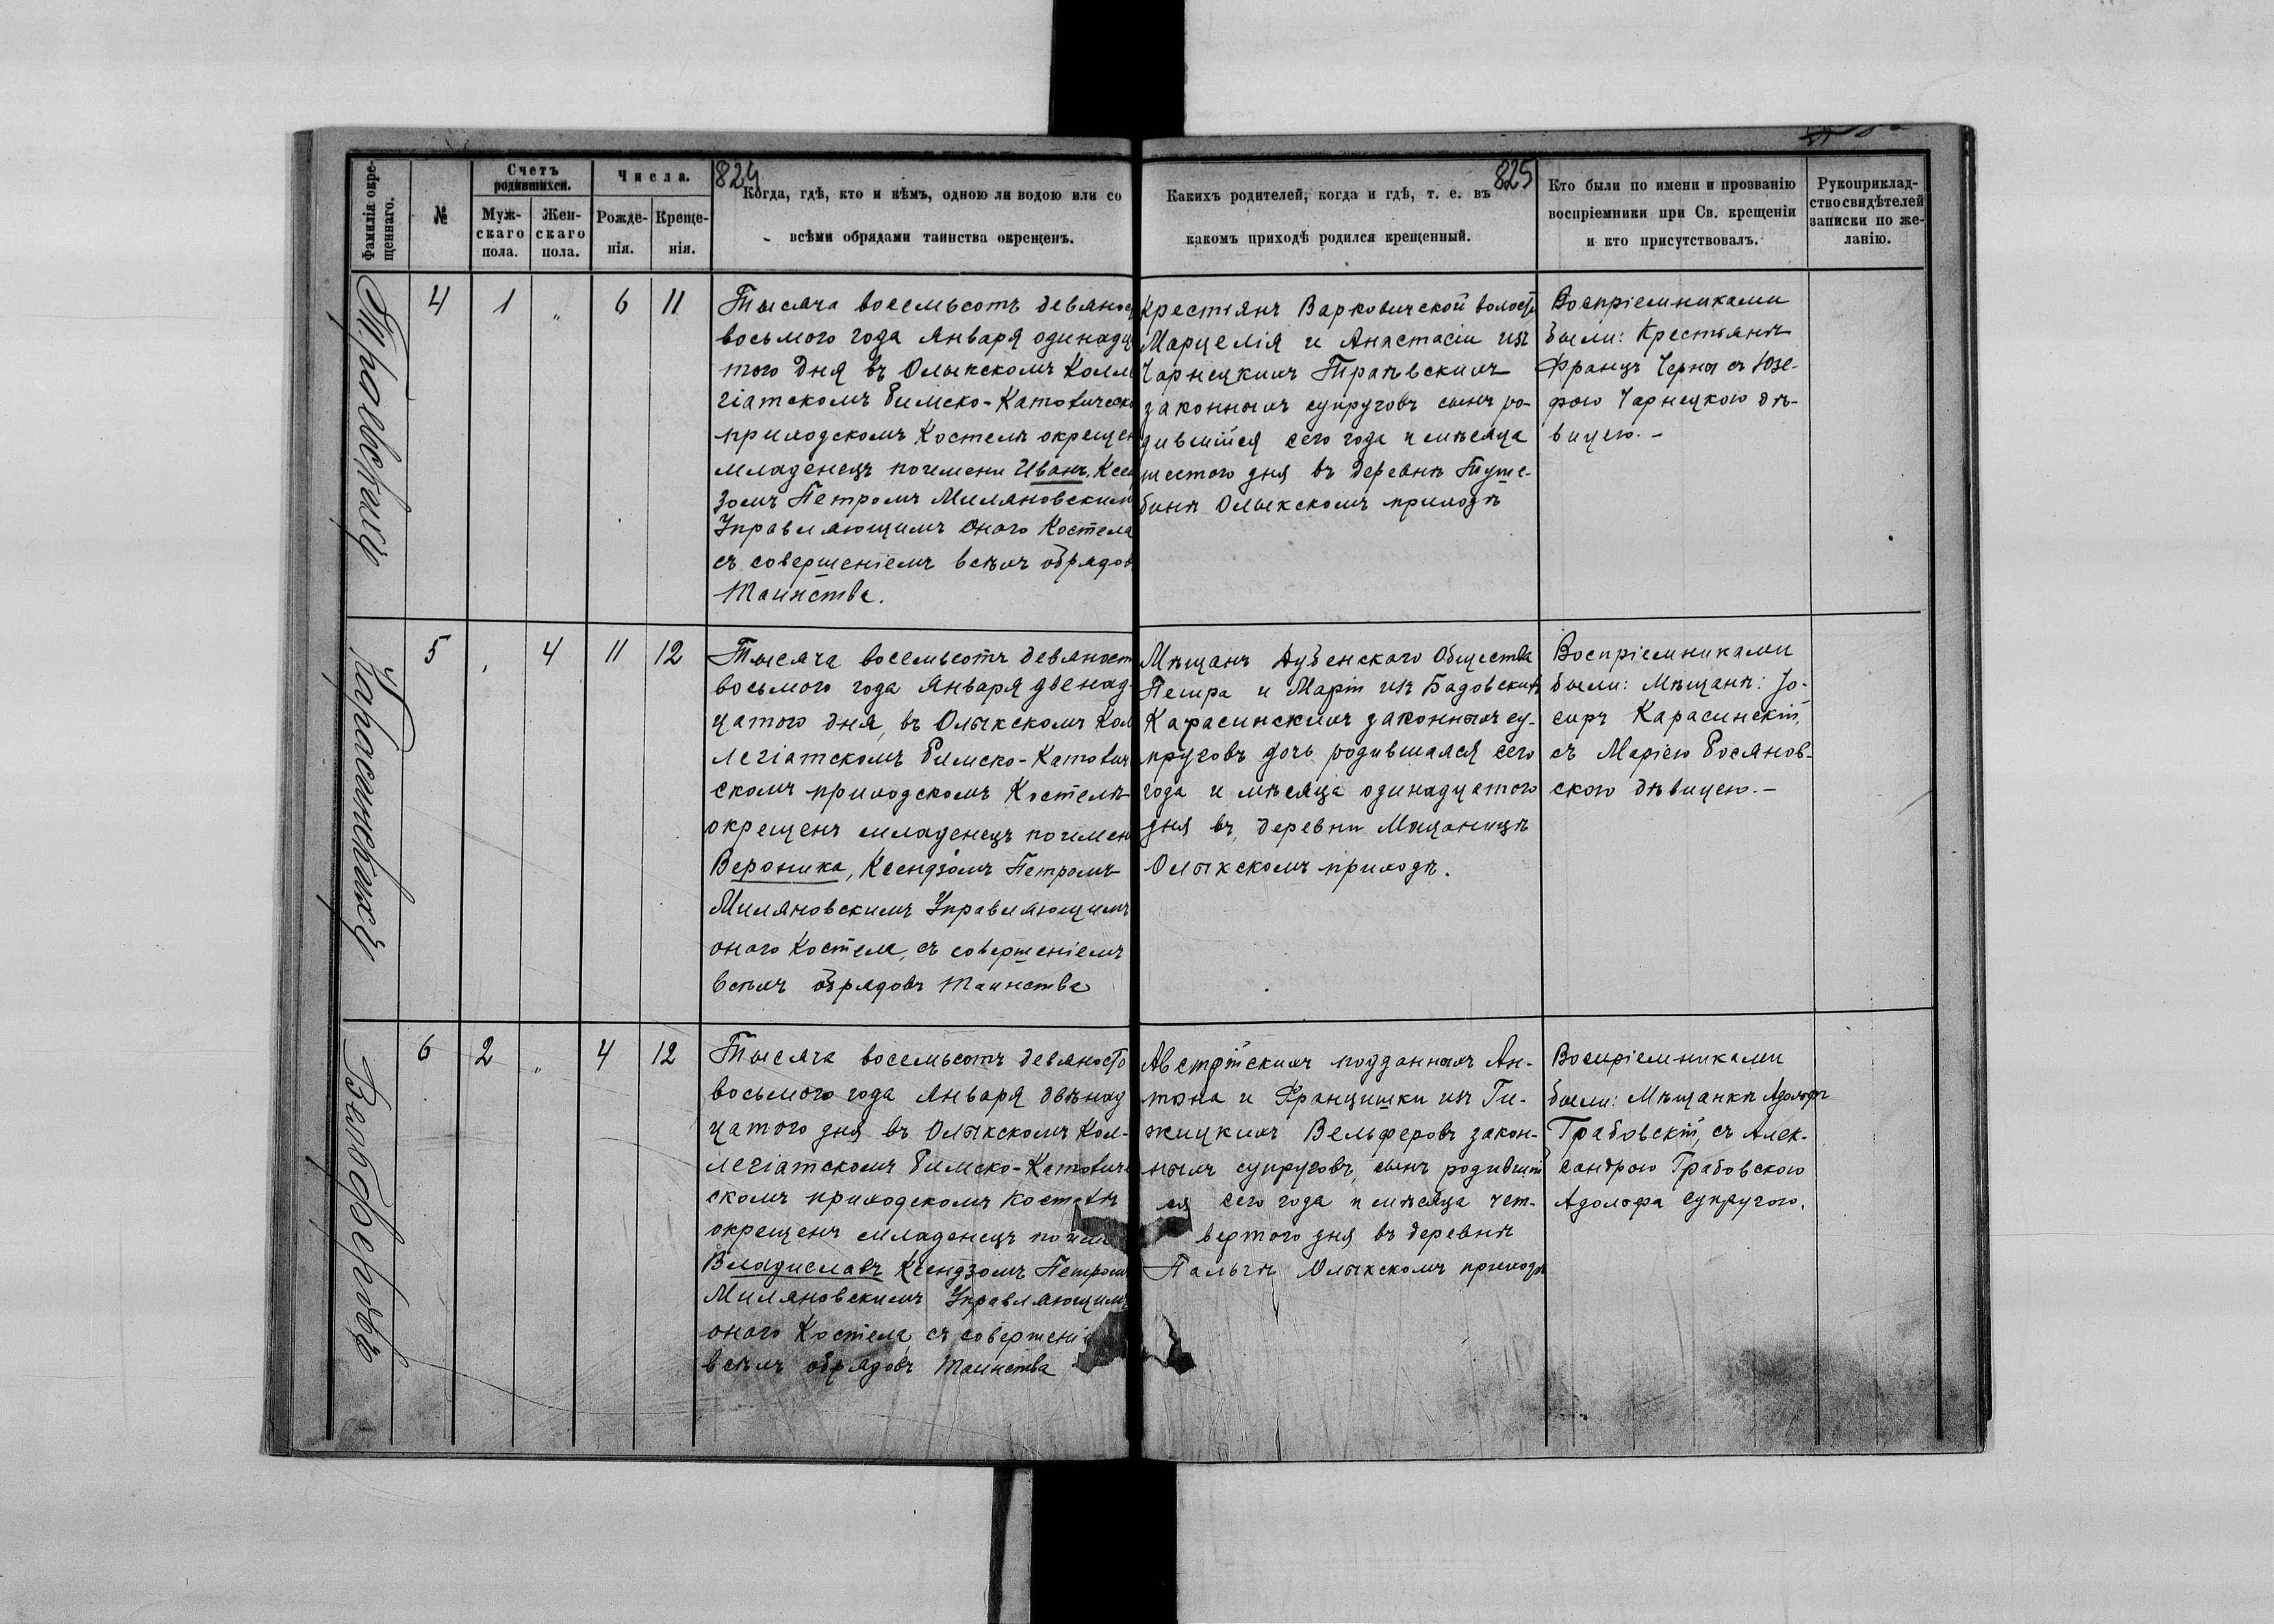 824
825
Фамилія окре-
щеннаго.
№
Счетъ
родившихся.
Муж-
скаго
пола.
Жен-
скаго
пола.
Числа.
Рожде-
нія.
Креще-
нія.
Когда, гдѣ, кто и кѣмъ, одною ли водою или со
всѣми обрядами таинства окрещенъ.
Какихъ родителей, когда и гдѣ, т. е. въ
какомъ приходѣ родился крещенный.
Кто были по имени и прозванію
воспріемники при Св. крещеніи
и кто присутствовалъ.
Рукоприклад-
ство свидѣтелей
записки по же-
ланію.
4 1 „ 6 11
Тысяча восемьсотъ девяност
восьмого года Января одинадца
того дня въ Олыкскомъ Колле
гіатскомъ Римско-Католическо
приходскомъ Костелѣ окрещен
младенецъ поимени Иванъ, Ксен
зомъ Петромъ Миляновскимъ
Управляющимъ Оного Костела
съ совершеніемъ всѣхъ обрядов
Таинства.
Крестіянъ Варковичской волости
Марцелія и Анастасіи изъ
Чарнецкихъ
законныхъ супруговъ сынъ ро-
дившійся сего года и мѣсяца
шестого дня въ деревнѣ Туше-
бинѣ Олыкскомъ приходѣ
Воспріемниками
были: Крестьянѣ
Францъ Черны съ Юзе-
фою Чарнецкою дѣ-
вицею.-
Карасинскихъ
5 „ 4 11 12
Тысяча восемьсотъ девяност
восьмого года Января двенад-
цатого дня, въ Олыкскомъ Кол
легіатскомъ Римско-Католич
скомъ приходскомъ Костелѣ
окрещенъ младенецъ поимен
Вероника, Ксендзомъ Петромъ
Миляновскимъ Управляющимъ
оного Костела, съ совершеніемъ
всѣхъ обрядовъ Таинства
Мѣщанъ Дубенскаго Общества
Петра и Маріи изъ Бадовскихъ
Карасинскихъ законныхъ су-
пруговъ дочь родившаяся сего
года и мѣсяца одинадцатого
дня въ деревни Мацаницѣ
Олыкскомъ приходѣ.
Воспріемниками
были: Мѣщанѣ: Іо-
сифъ Карасинскій,
съ Маріею Росянов-
скою дѣвицею.-
Вельферовъ
6 2 „ 4 12
Тысяча восемьсотъ девяносто
восьмого года Января двѣнад
цатого дня въ Олыкскомъ Кол-
легіатскомъ Римско-Католиче
скомъ приходскомъ Костелѣ
окрещенъ младенецъ поиме
Владиславъ Ксендзомъ Петромъ
Миляновскимъ Управляющимъ
оного Костела, съ совершені
всѣхъ обрядовъ Таинства
Австрійскихъ подданныхъ Ан-
тона и Францишки изъ Ги-
жицкихъ Вельферовъ закон-
ныхъ супруговъ, сынъ родившій
ся сего года и мѣсяца чет-
вертого дня въ деревнѣ
Пальчѣ Олыкскомъ приходѣ
Воспріемниками
были: Мѣщанѣ Адольфъ
Грабовскій, съ Алек-
сандрою Грабовскою
Адольфа супругою.